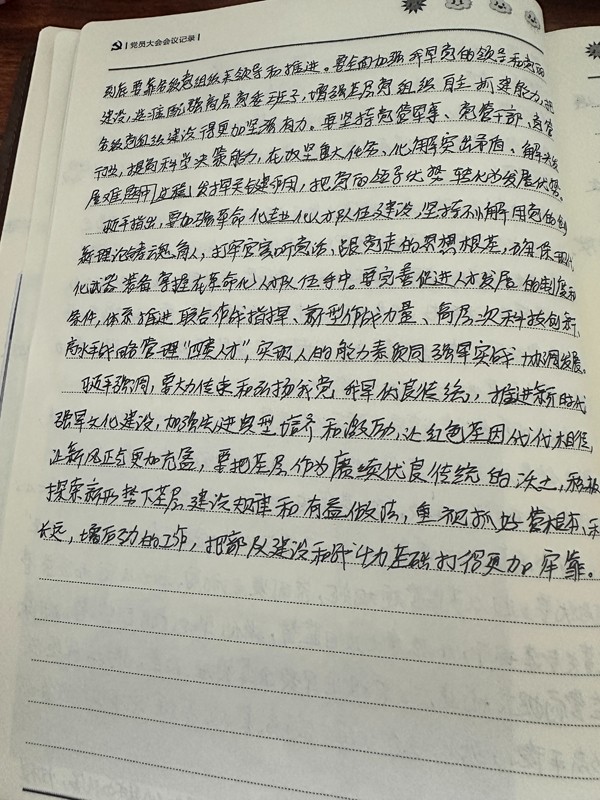 党员大会会议记录
到后要靠各级党组织来领导和推进。要全面加强我军党的领导和党的
建设,进一步配强高层党委班子,增强基层党组织自主抓建能力,把
各级党组织建设得更加坚强有力。要坚持党管军事、党管干部、党管
,提高科学决策能力,在攻坚重大任务、化解突出矛盾、解决发
展难题的进程发挥关键作用,把党的领导优势转化为发展优势。
指出,要加强革命化专业化人才队伍建设,坚持不懈用党的创
新理论铸魂育人,打牢官兵听党话、跟党走的思想根基,确保现代
化武器装备掌握在革命化人才队伍手中。要完善促进人才发展的制度和
条件,体系推进联合作战指挥、新型作战力量、高层次科技创新、
高水平战略管理“四类人才”,实现人的能力素质同强军实战协调发展。
强调,要大力传承和弘扬我党我军优良传统,推进新时代
强军文化建设,加强先进典型培养和激励,让红色基因代代相传,
让新风正气更加充盈,要把基层作为赓续优良传统的沃土,积极
探索新形势下基层建设规律和有益做法,重视抓好管根本、利
长远,增后劲的工作,把部队建设和战斗力基础打得更加牢靠。